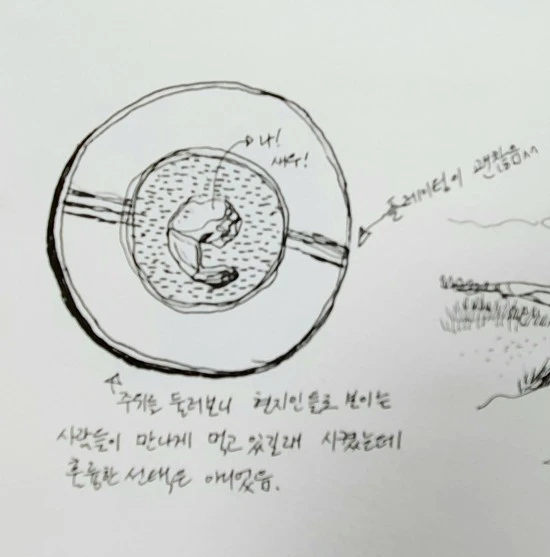 나!
새우!
플레이팅이 괜찮음^^
주위를 둘러보니 현지인들로 보이는
사람들이 맛나게 먹고 있길래 시켰는데
훌륭한 선택은 아니었음.